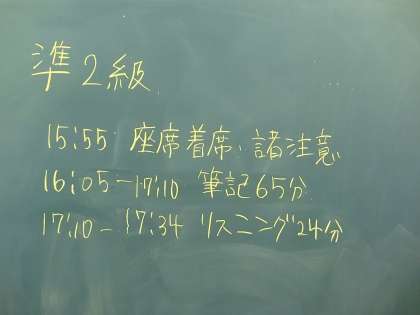 準2級
15:55 座席着席、諸注意
16:05-17:10 筆記65分
17:10-17:34 リスニング24分